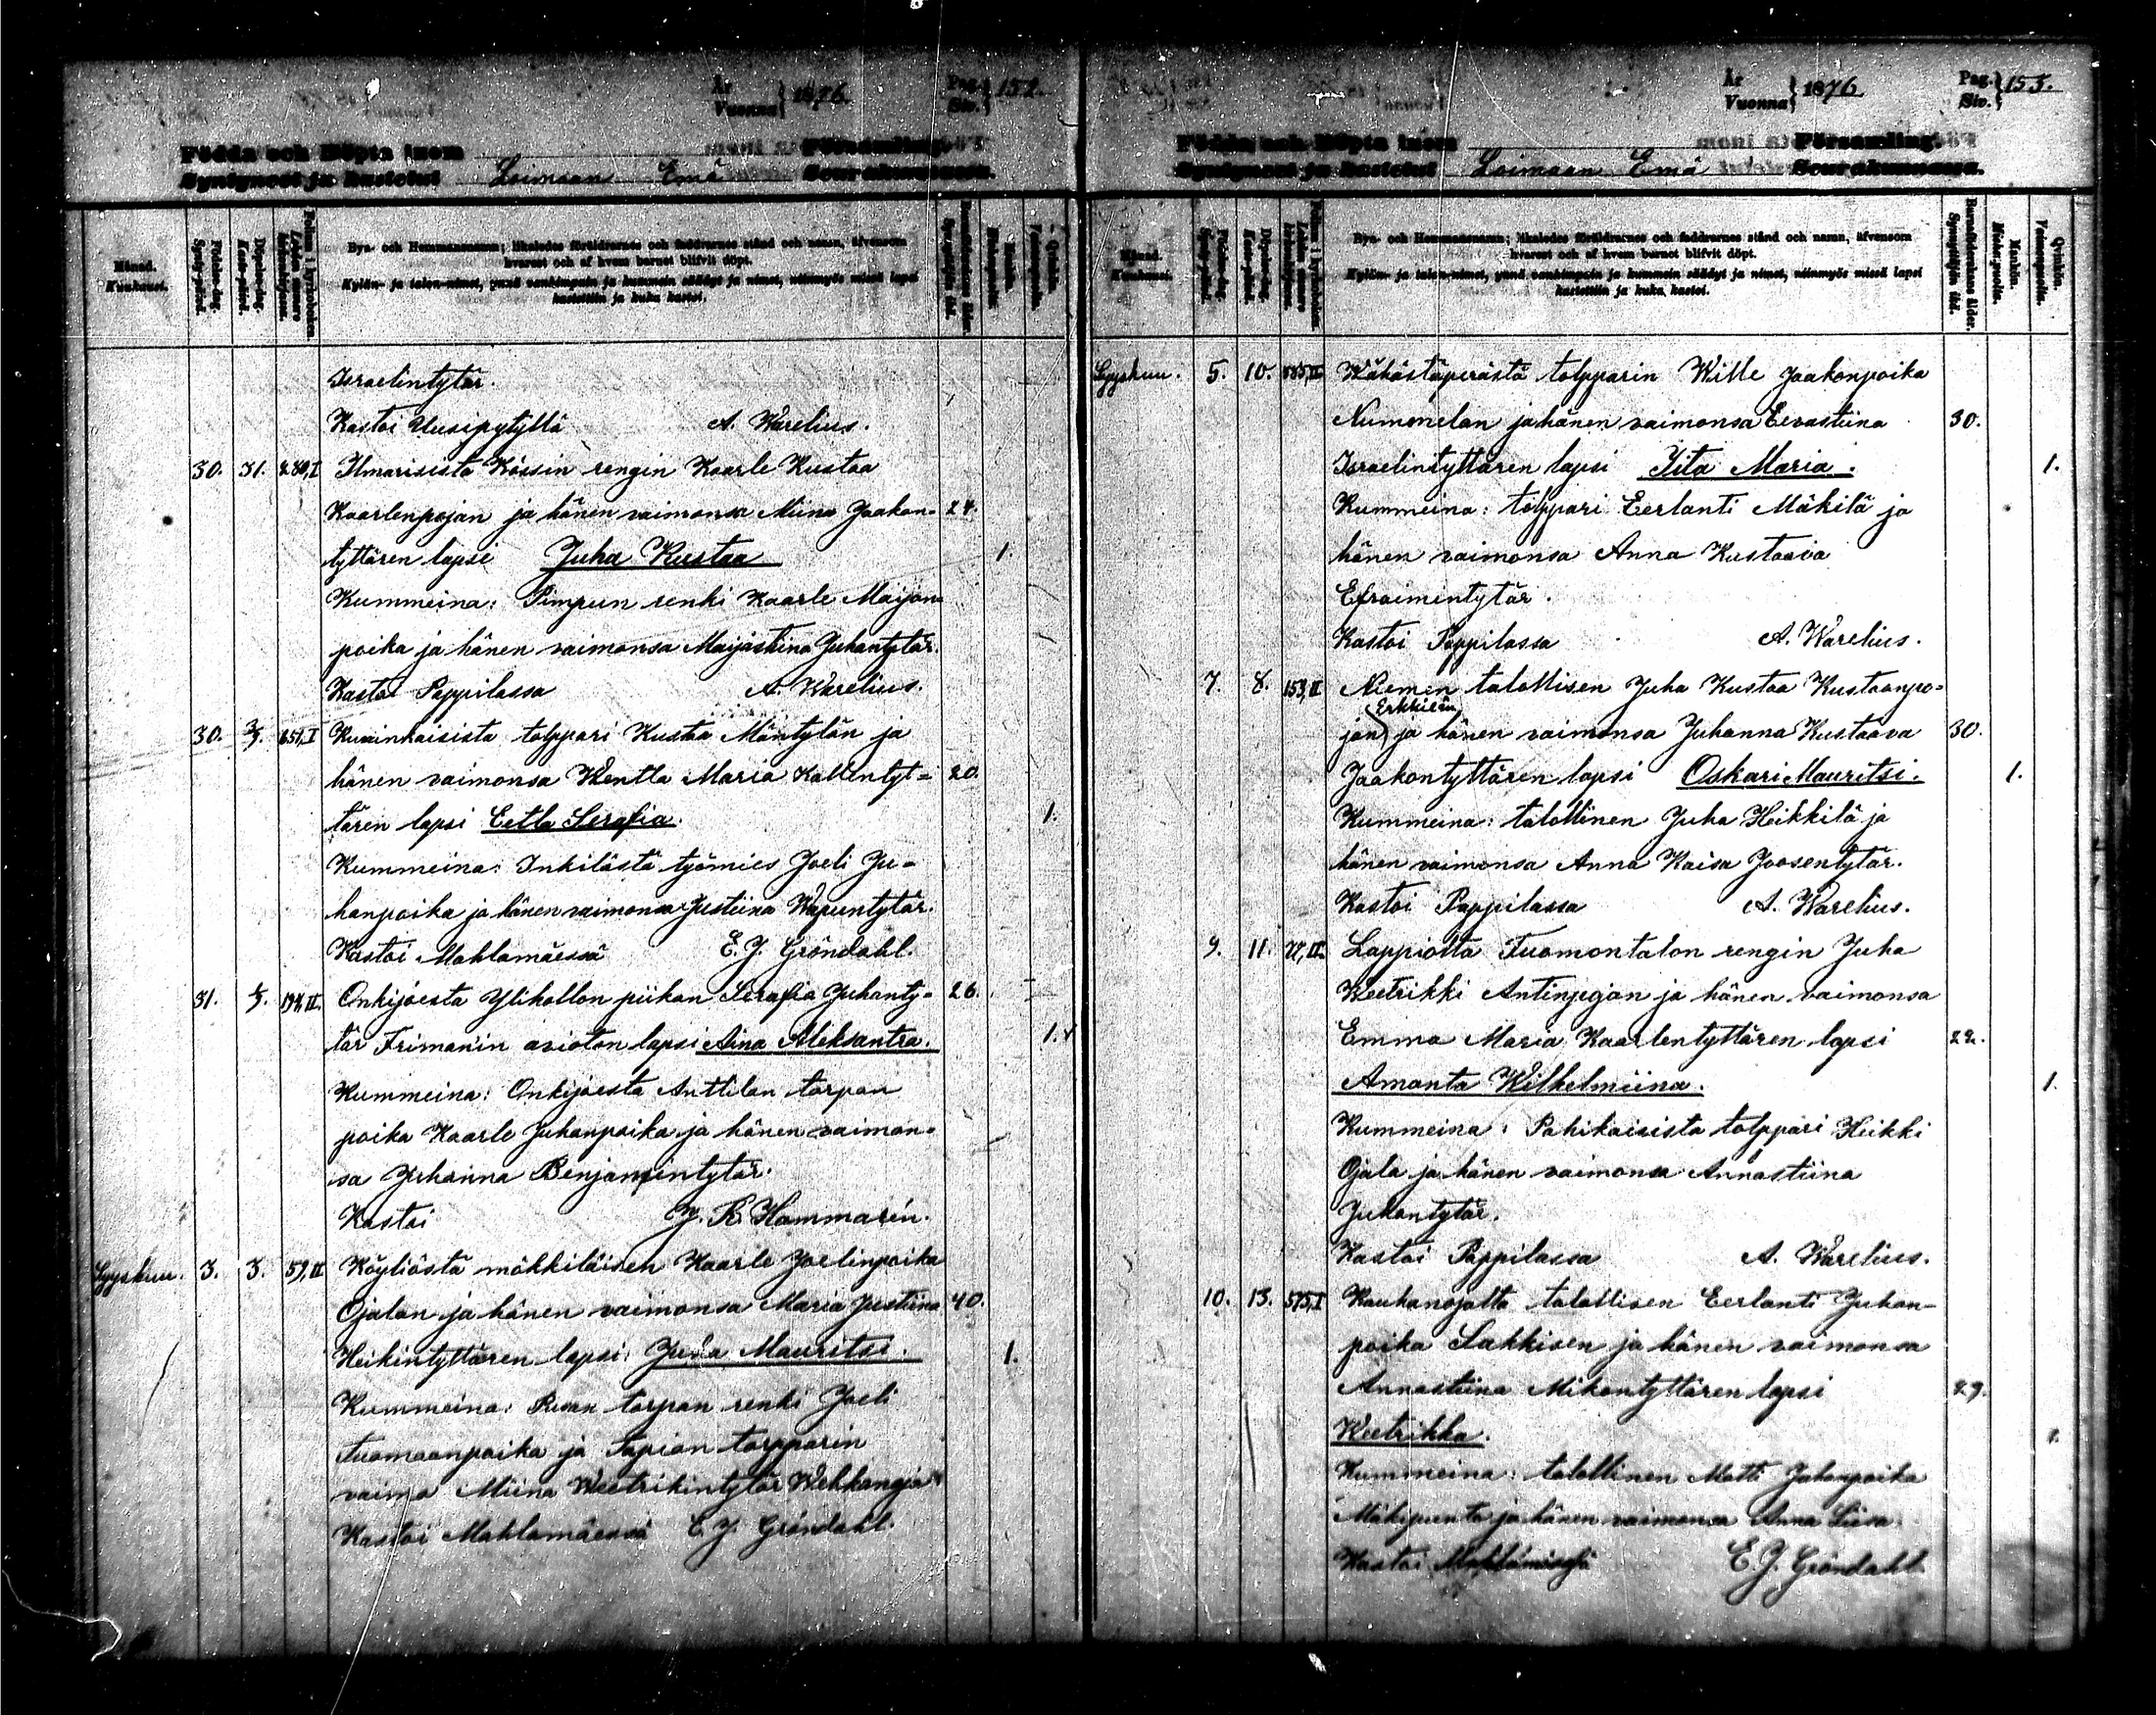 År
Vuonna} 1876.
Pag.
Siv.} 152.
Födda och Döpta inom Församling.
Syntyneet ja kastetut Loimaan Emä Seurakunnassa.
Månad.
Kuukausi.
Födelse-dag.
Synty-päivä.
Döpelse-dag.
Kaste-päivä.
Byn- och Hemmansnamn; likaledes föräldrarnes och faddrarnes stånd och namn, äfvensom
hvarest och af hvem barnet blifvit döpt.
Kylän- ja talon-nimet, ynnä vanhimpain ja kummein säädyt ja nimet, niinmyös missä lapsi
kastettiin ja kuka kastoi.
Israelintytär.
Kastoi Uusipytyllä A. Warelius.
30. 31. 280, I Ilmarisista Kössin rengin Kaarle Kustaa
Kaarlenpojan ja hänen vaimonsa Miina Jaakon- 24.
tyttären lapsi Juha Kustaa 1.
Kummeina: Pimpun renki Kaarle Maijan-
poika ja hänen vaimonsa Maijastiina Juhantytär.
Kastoi Pappilassa A. Warelius.
30. 3/9. 651, I Kuninkaisista tolppari Kustaa Mäntylän ja
hänen vaimonsa Wentla Maria Kallentyt- 20.
tären lapsi Eetla Serafia. 1.
Kummeina: Inkilästä työmies Joeli Ju-
hanpoika ja hänen vaimonsa Justiina Wapuntytär.
Kastoi Mahlamäessä E. J. Gröndahl.
31. 1/9. 194, II. Onkijoesta Ylihollon piikan Serafia Juhanty- 26.
tär Friman'in avioton lapsi Aina Aleksantra. 1.
Kummeina: Onkijoesta Anttilan torpan
poika Kaarle Juhanpoika ja hänen vaimon-
sa Juhanna Benjamintytär.
Kastoi J. R. Hammarén.
Syyskuu. 3. 3. 59, II Köyliöstä mökkiläisen Kaarle Joelinpoika
Ojalan ja hänen vaimonsa Maria Justiina 40.
Heikintyttären lapsi: Juha Mauritsi. 1.
Kummeina: torpan renki Joeli
Tuomaanpoika ja Tapian torpparin
vaimo Miina Weetrikintytär Wehkanoja
Kastoi Mahlamäessä E. J. Gröndahl.
År
Vuonna} 1876
Pag.
Siv.} 153.
Födda och Döpta inom Församling.
Syntyneet ja kastetut Loimaan Emä Seurakunnassa.
Månad.
Kuukausi.
Födelse-dag.
Synty-päivä.
Döpelse-dag.
Kaste-päivä.
Byn- och Hemmansnamn; likaledes föräldrarnes och faddrarnes stånd och namn, äfvensom
hvarest och af hvem barnet blifvit döpt.
Kylän- ja talon-nimet, ynnä vanhimpain ja kummein säädyt ja nimet, niinmyös missä lapsi
kastettiin ja kuka kastoi.
Barnaföderskans ålder.
Synnyttäjän ikä.
Mankön.
Miehenpuolia.
Qvinkön.
Vaimonpuolia.
Syyskuu. 5. 10. Wähästäperästä tolpparin Wille Jaakonpoika
Nummelan ja hänen vaimonsa Eevastiina 30.
Israelintyttären lapsi Iita Maria. 1.
Kummeina: tolppari Eerlanti Mäkilä ja
hänen vaimonsa Anna Kustaava
Efraimintytär.
Kastoi Pappilassa A. Warelius.
7. 8. 153, II Niemen talollisen Juha Kustaa Kustaanpo-
Erkkilän
jan ja hänen vaimonsa Juhanna Kustaava 30.
Jaakontyttären lapsi Oskari Mauritsi. 1.
Kummeina: talollinen Juha Heikkilä ja
hänen vaimonsa Anna Kaisa Joosentytär.
Kastoi Pappilassa A. Warelius.
9. 11. Lappiolta Tuomontalon rengin Juha
Weetrikki Antinpojan ja hänen vaimonsa
Emma Maria Kaarlentyttären lapsi 22.
Amanta Wilhelmiina. 1.
Kummeina: Pahikaisista tolppari Heikki
Ojala ja hänen vaimonsa Annastiina
Juhontytär.
Kastoi Pappilassa A. Warelius.
10. 13. 575, I Kauhanojalta talollisen Eerlanti Juhan-
poika Sakkisen ja hänen vaimonsa
Annastiina Mikontyttären lapsi 29.
Weetrikka. 1.
Kummeina: talollinen Matti Juhanpoika
Mäkipunta ja hänen vaimonsa Anna Liisa.
Kastoi E. J. Gröndahl.